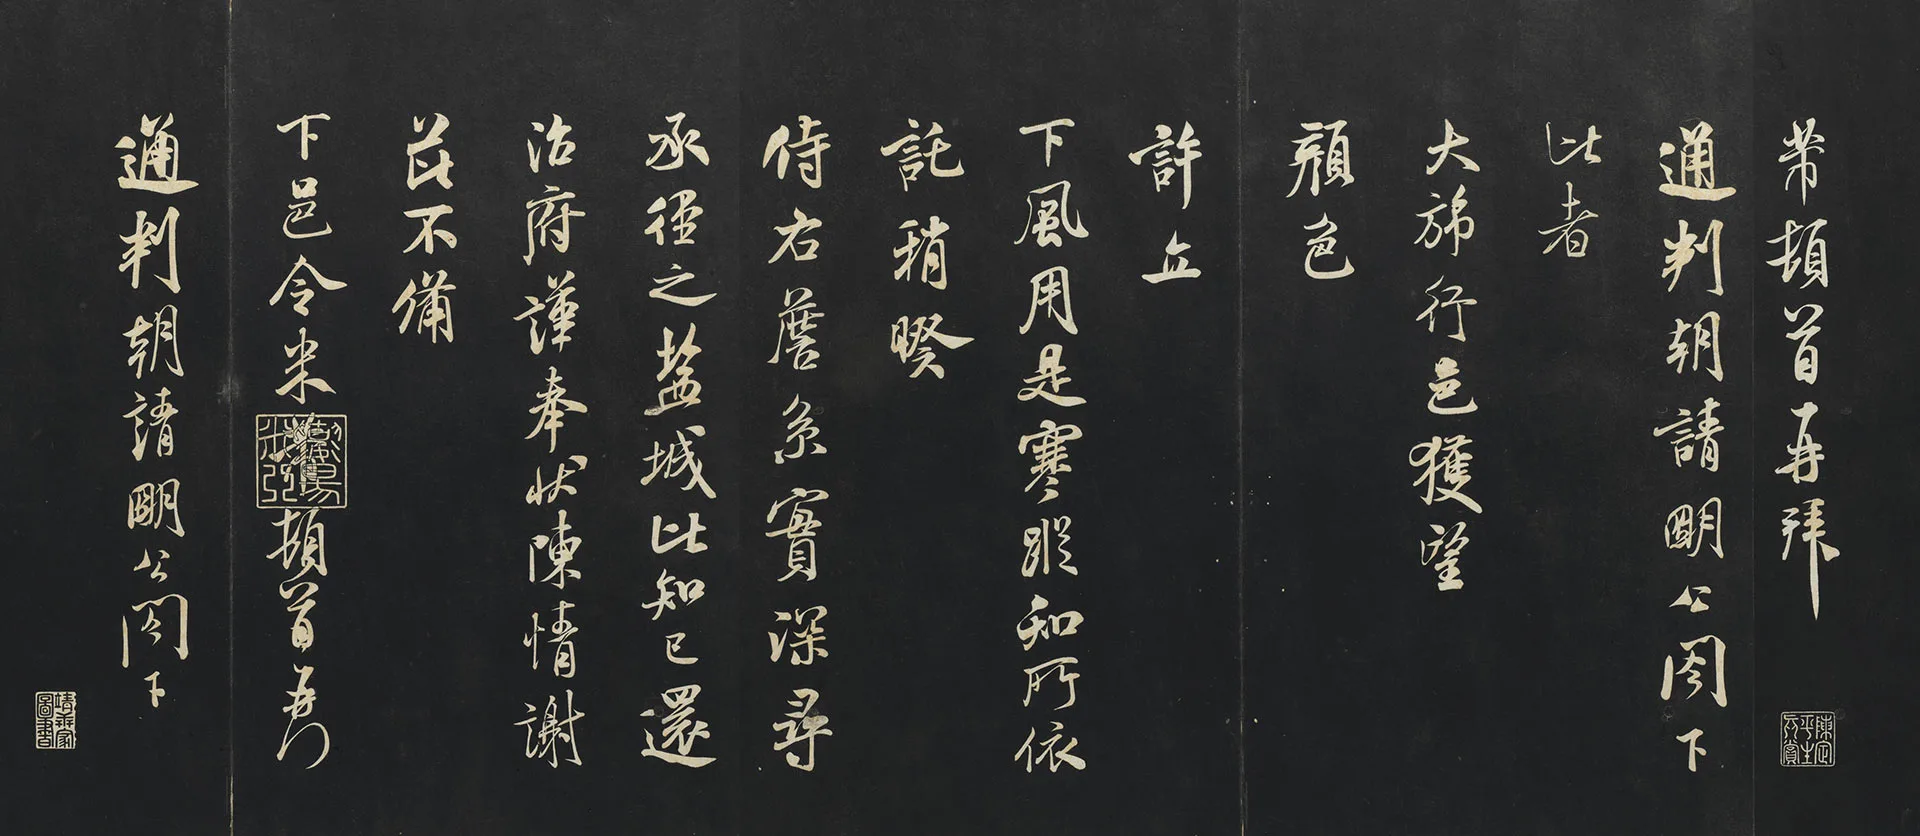 芾頓首再拜
通判朝請明公閤下
比者
大旆行邑獲望
顏色
許立
下風用是寒蹤知所依
託稍暌
侍右詹系實深尋
承徑之鹽城比知已還
治府謹奉狀陳情謝
芘不備
下邑令米
頓首再拜
通判朝請明公閤下